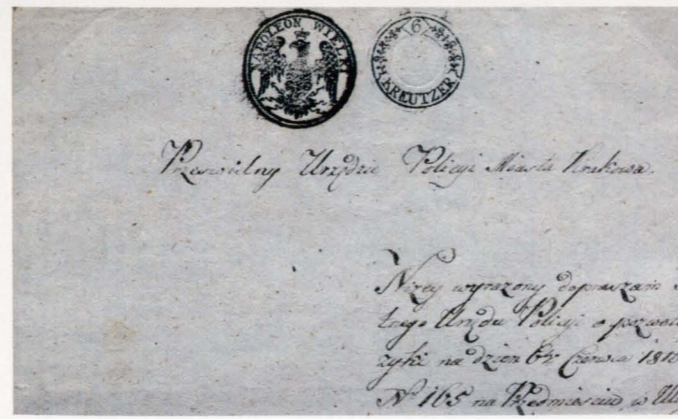 NAPOLEON WIELKI
6
KREUTZER
Prześwietny Urzędzie Policyi Miasta Krakowa.
Niżey wyrażony dopraszam
tnego Urzędu Policyi o pozwol
zyki na dzień 6ty Czerwca 1810
Nº 165 na Przedmieściu w